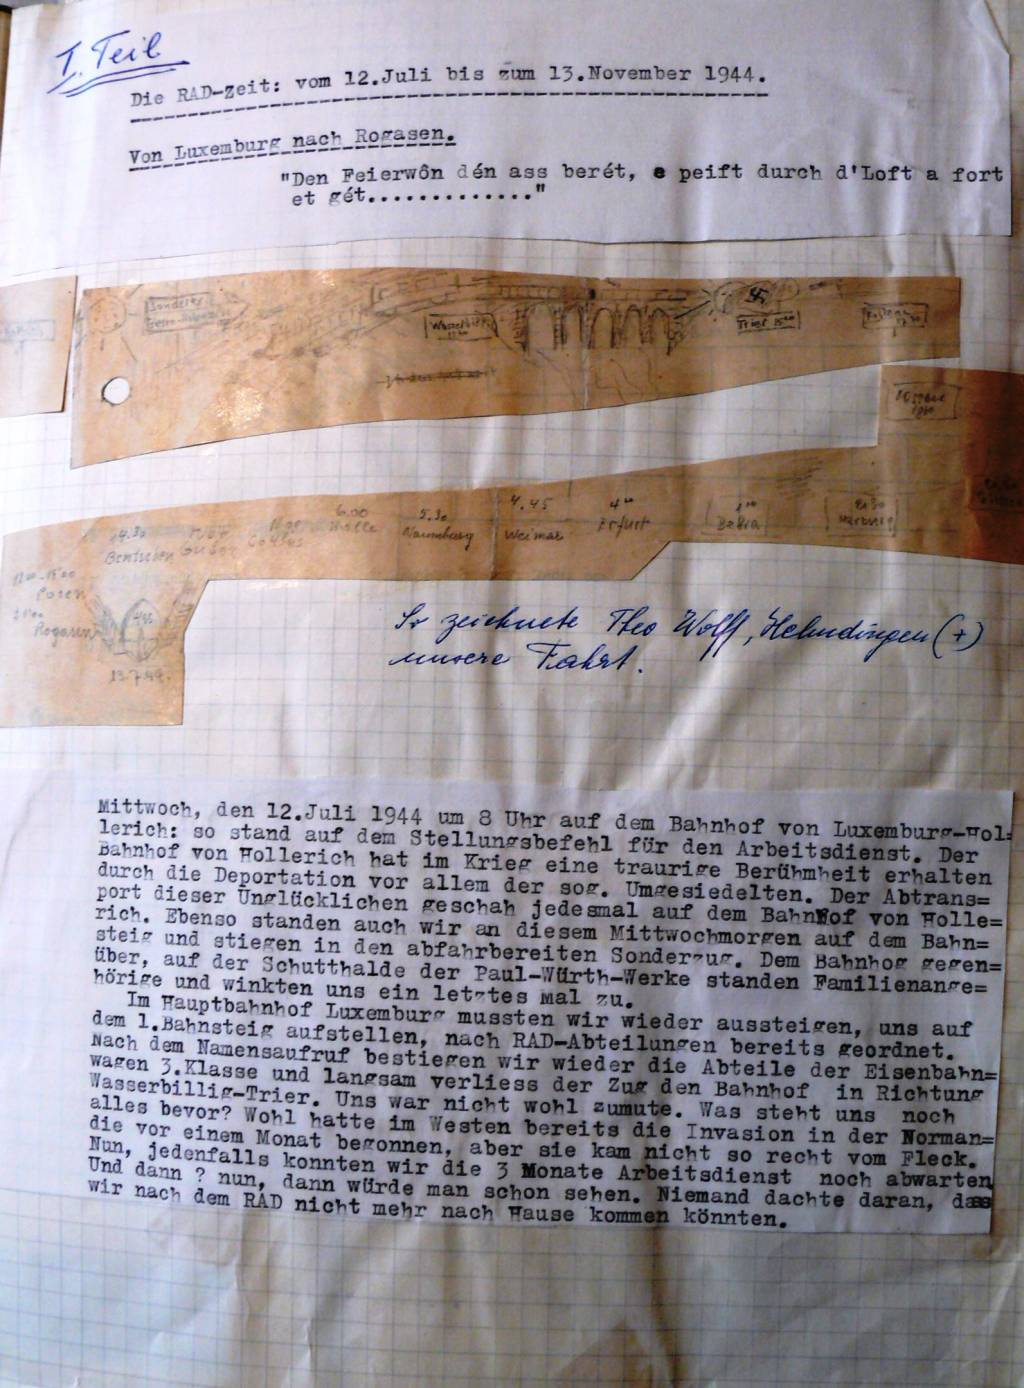 I. Teil
Die RAD-zeit: vom 12.Juli bis zum 13.November 1944.
Von Luxemburg nach Rogasen.
"Den Feierwôn dén ass berét, e peift durch d'Loft a fort
et gét............."
Sonderzug
Wasserbillig
Trier
4.45
Weimar
4.00
Erfurt
5.30
Naumburg
6.00
Halle
1.00
Bebra
21.30
Marburg
14.30
Bentschen
Guben
Cottbus
Posen
Rogasen
13.7.44.
So zeichnete Theo Wolff, Helmdingen (+)
unsere Fahrt.
Mittwoch, den 12.Juli 1944 um 8 Uhr auf dem Bahnhof von Luxemburg-Hol=
lerich: so stand auf dem Stellungsbefehl für den Arbeitsdienst. Der
Bahnhof von Hollerich hat im Krieg eine traurige Berühmheit erhalten
durch die Deportation vor allem der sog. Umgesiedelten. Der Abtrans=
port dieser Unglücklichen geschah jedesmal auf dem Bahnhof von Holle=
rich. Ebenso standen auch wir an diesem Mittwochmorgen auf dem Bahn=
steig und stiegen in den abfahrbereiten Sonderzug. Dem Bahnhog gegen=
über, auf der Schutthalde der Paul-Würth-Werke standen Familienange=
hörige und winkten uns ein letztes Mal zu.
Im Hauptbahnhof Luxemburg mussten wir wieder aussteigen, uns auf
dem 1.Bahnsteig aufstellen, nach RAD-Abteilungen bereits geordnet.
Nach dem Namensaufruf bestiegen wir wieder die Abteile der Eisenbahn=
wagen 3.Klasse und langsam verliess der Zug den Bahnhof in Richtung
Wasserbillig-Trier. Uns war nicht wohl zumute. Was steht uns noch
alles bevor? Wohl hatte im Westen bereits die Invasion in der Norman=
die vor einem Monat begonnen, aber sie kam nicht so recht vom Fleck.
Nun, jedenfalls konnten wir die 3 Monate Arbeitsdienst noch abwarten
Und dann ? nun, dann würde man schon sehen. Niemand dachte daran, dass
wir nach dem RAD nicht mehr nach Hause kommen könnten.